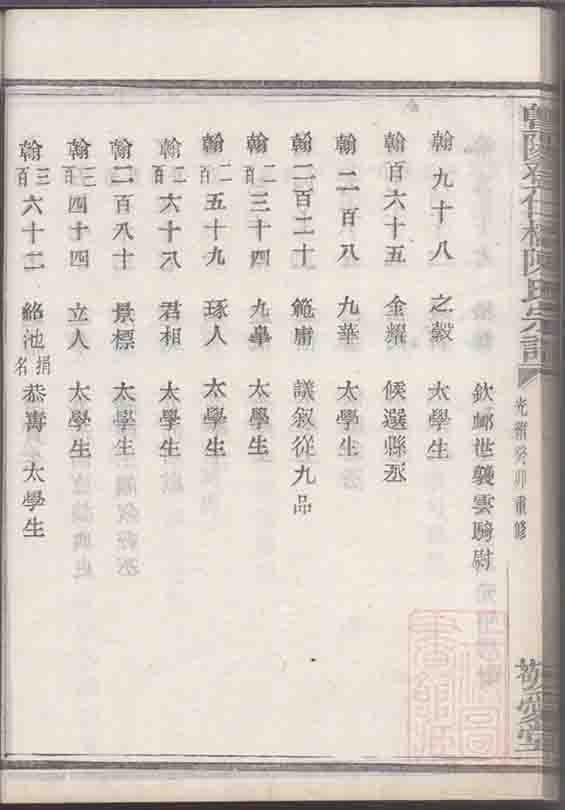 欽邺世襲雲騎尉
翰九十八 之縠 太學生
翰百六十五 金耀 候選縣丞
翰二百八 九華 太學生
翰二百二十 範庸 議叙從九品
翰二百三十四 九皋 太學生
翰二百五十九 琢人 太學生
翰二百六十八 君相 太學生
翰二百八十 景標 太學生
翰三百四十四 立人 太學生
翰三百六十二 絡池 捐名 恭壽 太學生
光緒癸卯重修
敬愛堂